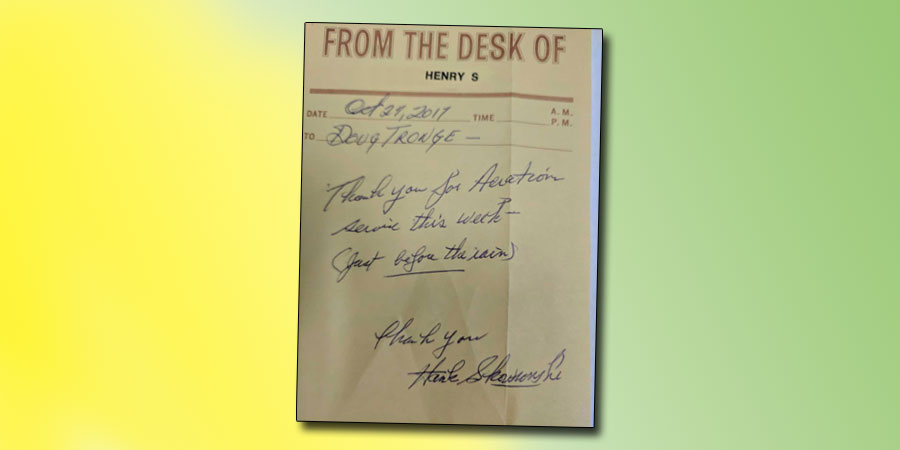 FROM THE DESK OF
HENRY S
DATE Oct 29, 2017 TIME A.M.
P.M.
TO DOUG TRONGE —
Thank you for Aeration
service this week —
(Just before the rain)
Thank you
Hank